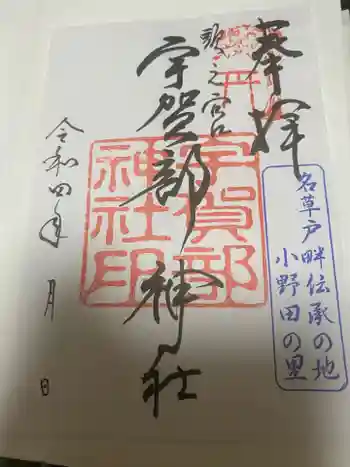 奉拝
名草戸畔伝承の地
小野田の里
頭之宮
宇賀部神社
宇賀部
神社印
令和四年 月 日